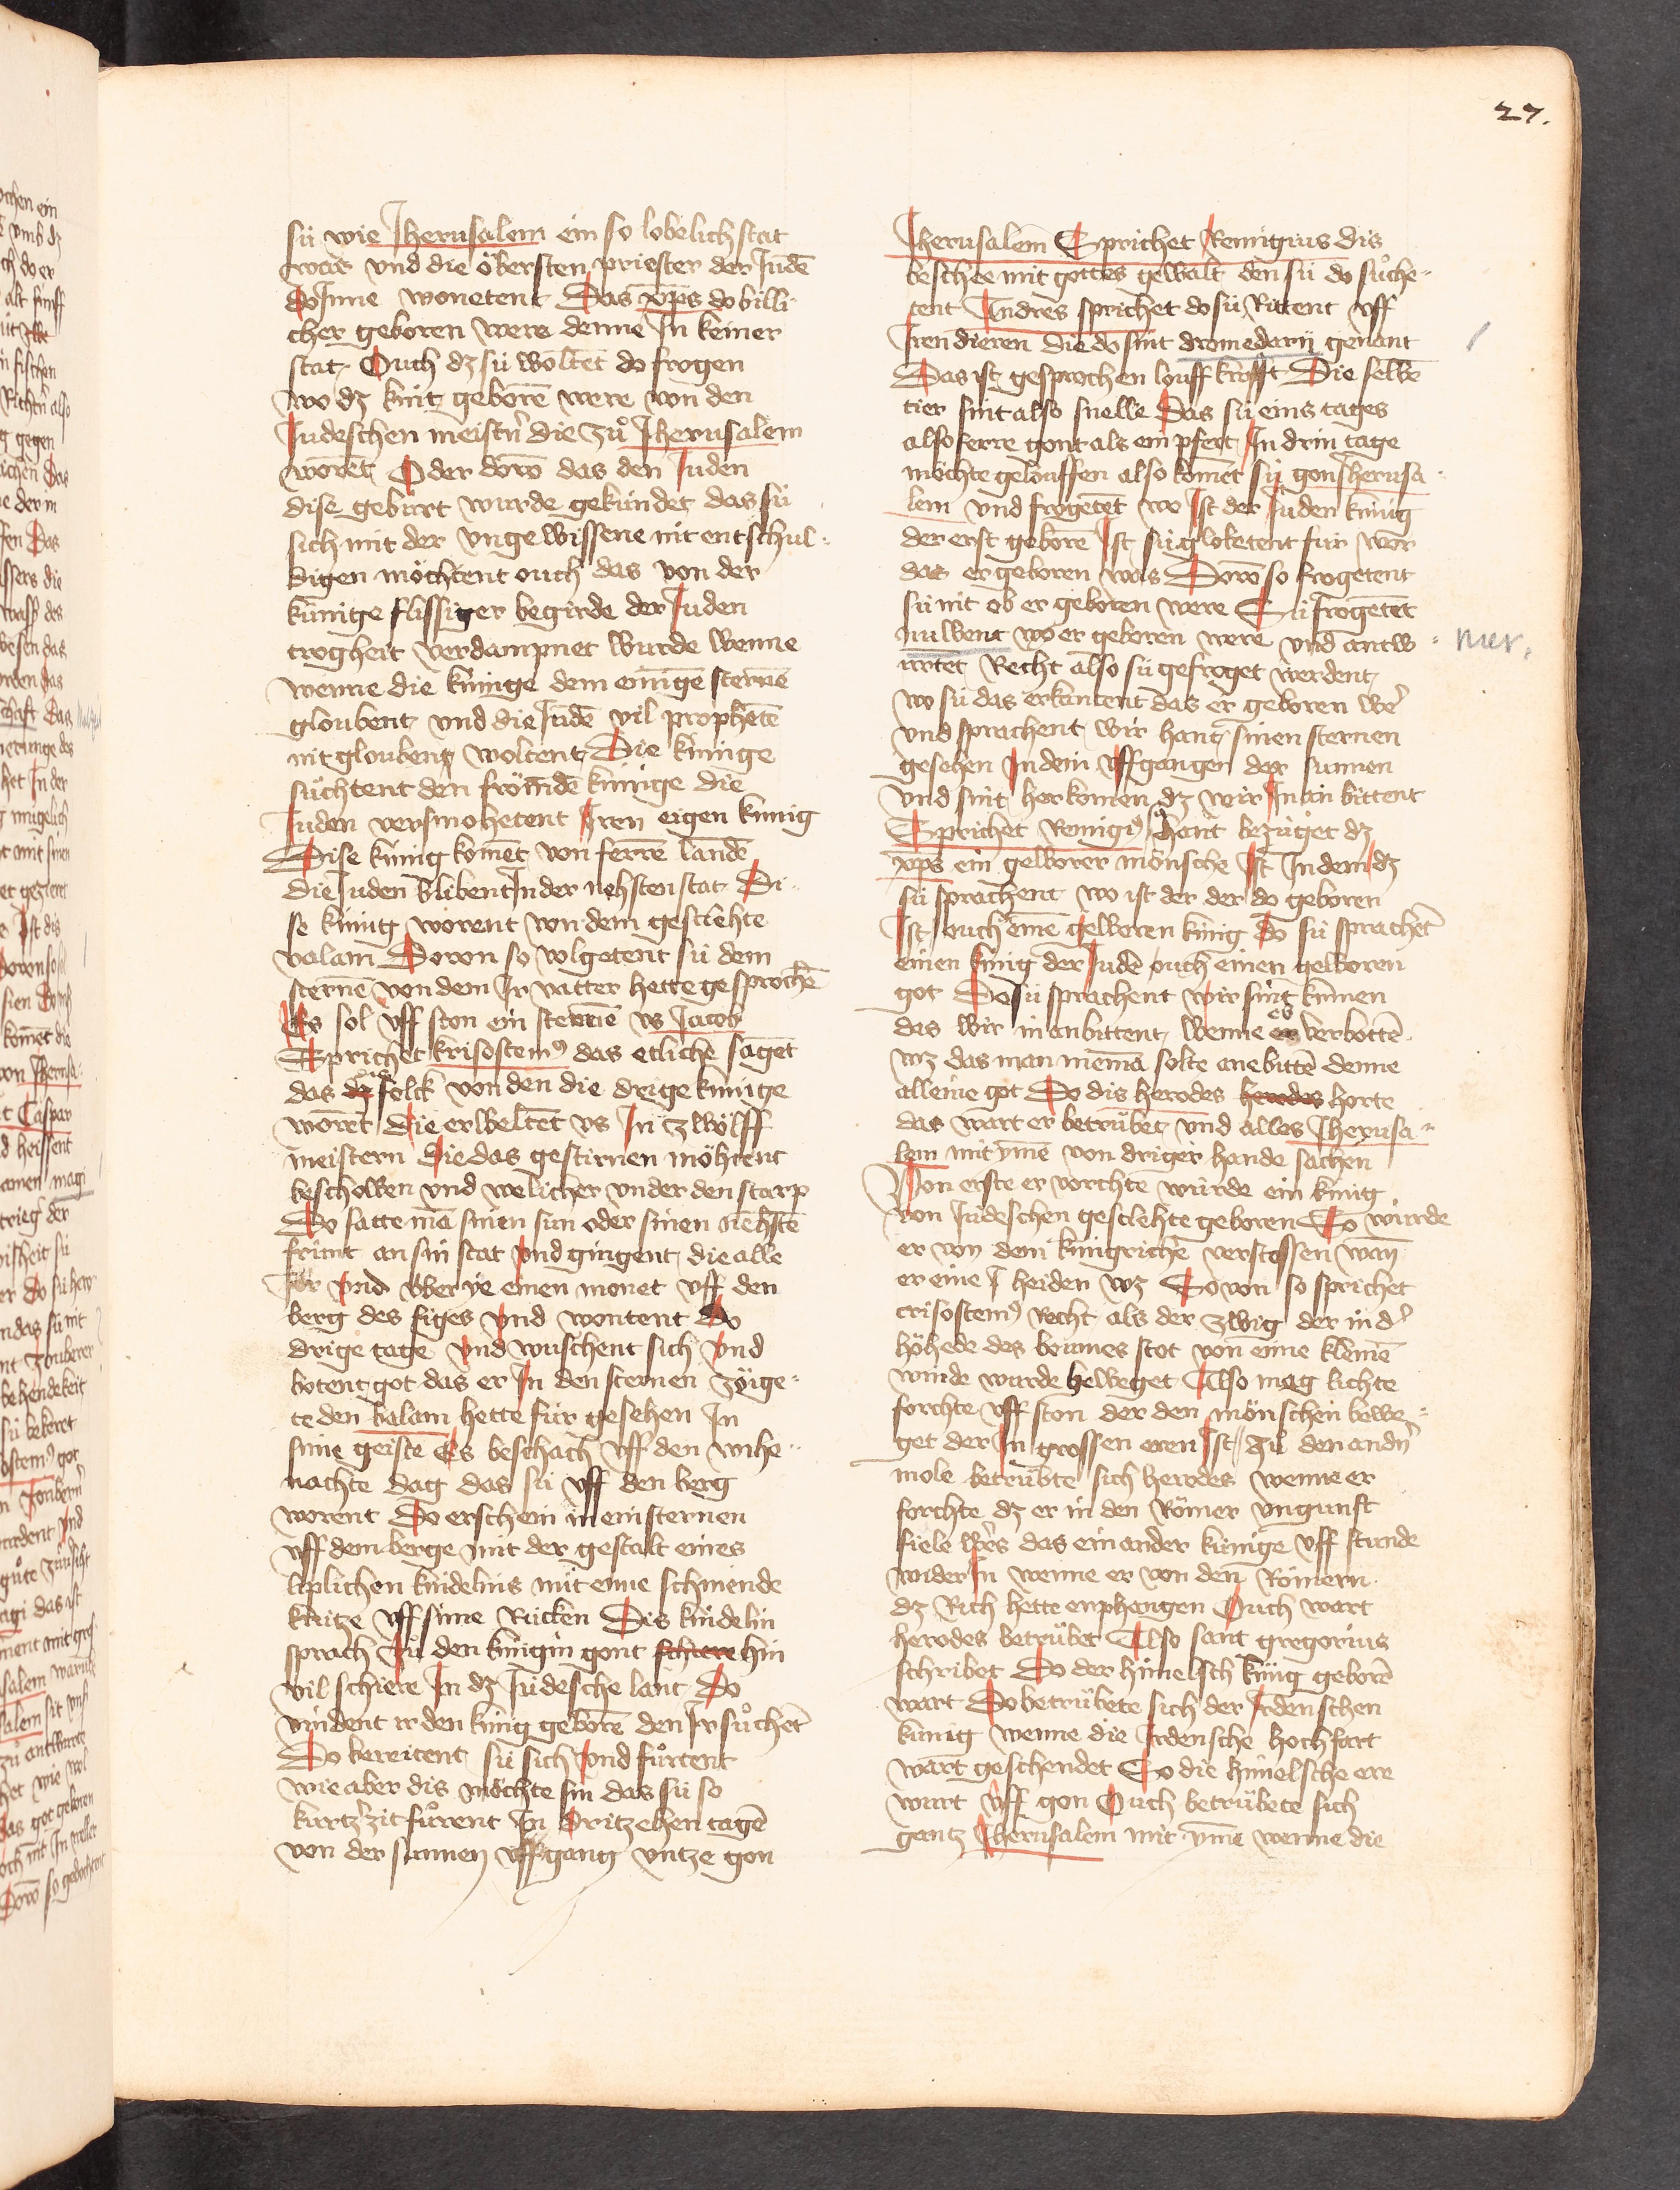 27.
sü wie Jherusalem ein so lobelich stat
was vnd die öbersten priester der Judē
do Jnne wonetent Das xp̄s do billi
cher geboren were denne Jn keiner
stat Ouch dz sü woltēt do frogen
wo dz kint geborē were von den
Judeschen meistern die zů Jherusalem
worēt Oder dorō das den Juden
dise geburt wurde gekündet das sü
sich mit der vnge wissene nit entschul-
digen möchtent ouch das von der
künige flissiger begirde der Juden
trogheit verdampnet wurde wenne
wenne die künige dem einigē sternē
gloubent vnd die Judē vil prophetē
nit gloubent woltent Die künige
sůchtent den frömdē künige die
Juden versmohetent Jren eigen künig
Dise künig komēt von ferrē landē
die Juden blibent Jn der nehsten stat Di-
se künig worent von dem geslehte
valam Doron so volgetent sü dem
sternē von dem Jr vatter hette gesprochē
Es sol vff ston ein sternē vs Jacob
Sprichet krisostem⁹ das etliche sagēt
das folck von den die drige künige
worēt Die erweltēt vs Jn zwölff
meistern Die das gestirnen möhtent
beschowen vnd welicher vnder den starp
Do satte mā sinen sun oder sinen nehstē
frünt an sin stat vnd gingent die alle
Jor vnd vber ye einen monet vff den
berg des siges vnd wontent Do
drige tage vnd wuschent sich vnd
botent got das er Jn den sternen zöige-
te den balam hette für gesehen Jn
sime geiste Es beschach vff den wihe-
nachte dag das sü vff den berg
worent Do erschein in ein sternen
vff dem berge mit der gestalt eines
liplichen kindelins mit eime schinende
kritze vff sime Rücken Dis kindelin
sprach Zů den künigin gont schiere hin
vil schiere Jn dz Jüdesche lant Do
vindent ir den künig geborē den Jr sůchēt
Do bereitent sü sich vnd fůrtent
wie aber dis möchte sin das sü so
kurtz zit fůrent Jn dritzehen tagē
von der sunnen vffgang vntze gon
Jherusalem Sprichet Remigius dis
beschee mit gottes gewalt den sü do sůche-
tent Andres sprichet do sü Ritent vff
Jren dieren die do sint dromedarij genant
Das ist gesprochen louff krafft Die selbē
tier sint also snelle Das sü eins tages
also ferre gont als ein pfert Jn drin tage
möchte gelouffen also komēt sü gon Jherusa
lem vnd frogetēt wo Jst der Juden künig
der erst geborē Jst sü globetent für wor
das er geboren was Dorō so frogetent
sü nit ob er geboren were Sü frogetēt
nuwent wo er geboren were vnd antw-
nur.
urtēt Recht also sü gefroget werdent
wo sü das erkantent das er geboren wer
vnd sprachent wir hant sinen sternen
gesehen Jn dem vffgangen der sunnen
vnd sint her komen dz wir Jn an bittent
Sprichet Remigi⁹ hant bezüget dz
xp̄s ein geworer mönsche Jst Jn dem dz
sü sprachent wo ist der der do geboren
Jst ouch einē geweren künig do sü sprachēt
einen künig der Judē ouch einen geworen
got Do sü sprachent wir sint kumen
das wir in anbittent wenne es verbottē
wz das man niemā solte ane bittē denne
alleine got Do dis herodes herodes horte
das wart er betrübet vnd alles Jherusa-
lem mit yme von driger hande sachen
Von erste er vorchte würde ein künig
von Jüdeschen geslehte geboren So würde
er von dem künigriche verstossen wan
er eine J heiden wz Do von so sprichet
crisostem⁹ Recht als der zwig der in der
höhede des boumes stot von eime kleinē
winde wurde beweget Also mag lichte
forchte vff ston der den mönschen bewe-
get der Jn grossen eren Jst zů den andern
mole betrübte sich herodes wenne er
forchte dz er in den Römer vngunst
fiele wers das ein ander künige vff stunde
wider Jn wenne er von den Römern
dz Rich hette enphangen Ouch wart
herodes betrübet Also sant gregorius
schribet Do der himelsch künig geborē
wart Do betrübete sich der Jrdenschen
künig wenne die Jrdensche hochfart
wart geschendet So die himelsche ere
wurt vff gon Ouch betrübete sich
gantz Jherusalem mit yme wenne die